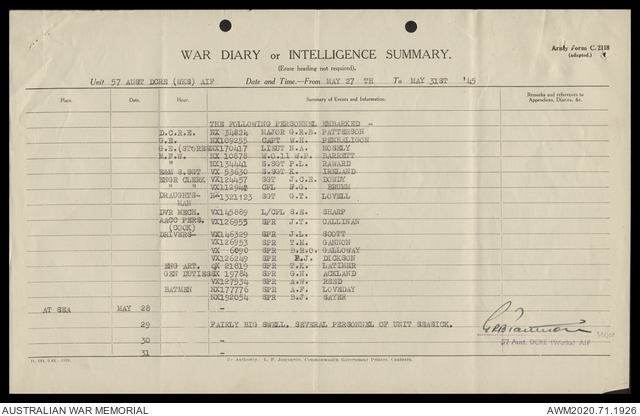 WAR DIARY or INTELLIGENCE SUMMARY.
Army Form C. 2118
(adapted.)
(Erase heading not required).
Unit 57 AUST DCRE (WKS) AIF Date and Time.—From MAY 27 TH To MAY 31ST '45
Place. Date. Hour. Summary of Events and Information. Remarks and references to
Appendices, Diaries, &c.
THE FOLLOWING PERSONNEL EMBARKED -
D.C.R.E. NX 34824 MAJOR G.R.B. PATTERSON
G.E. NX109255 CAPT W.H. PENHALIGON
G.E.(STORES) NX170417 LIEUT N.A. MOSELY
M.F.W. NX 10878 W.O.11 W.F. BARRETT
" NX134441 S.SGT P.L. RAWARD
E&M S.SGT VX 53630 S.SGT K. IRELAND
ENGR CLERK VX124457 SGT J.C.E. DOWDY
" " VX11294 CPL F.G. BRUMM
DRAUGHTS- 1321123 SGT G.T. LOVELL
MAN
DVR MECH. VX145889 L/CPL S.E. SHARP
AACC PERS. VX126955 SPR J.T. CALLINAN
(COOK)
DRIVERS- VX146329 SPR J.L. SCOTT
VX126953 SPR T.M. GANNON
VX 6090 SPR B.R.O. GALLOWAY
VX126249 SPR J. DICKSON
ENG ART. QX 21819 SPR T.K. LATIMER
GEN DUTIES SX 19784 SPR G.H. ACKLAND
VX127534 SPR A.W. REED
BATMEN NX177776 SPR A.F. LOVEDAY
NX192054 SPR B.J. GAYER
AT SEA MAY 28 -
29 FAIRLY BIG SWELL. SEVERAL PERSONNEL OF UNIT SEASICK.
Major
57 Aust. DCRE (Works) AIF
30 -
31 -
By Authority. L. F. Johnston, Commonwealth Government Printer, Canberra.
AUSTRALIAN WAR MEMORIAL
AWM2020.71.1926